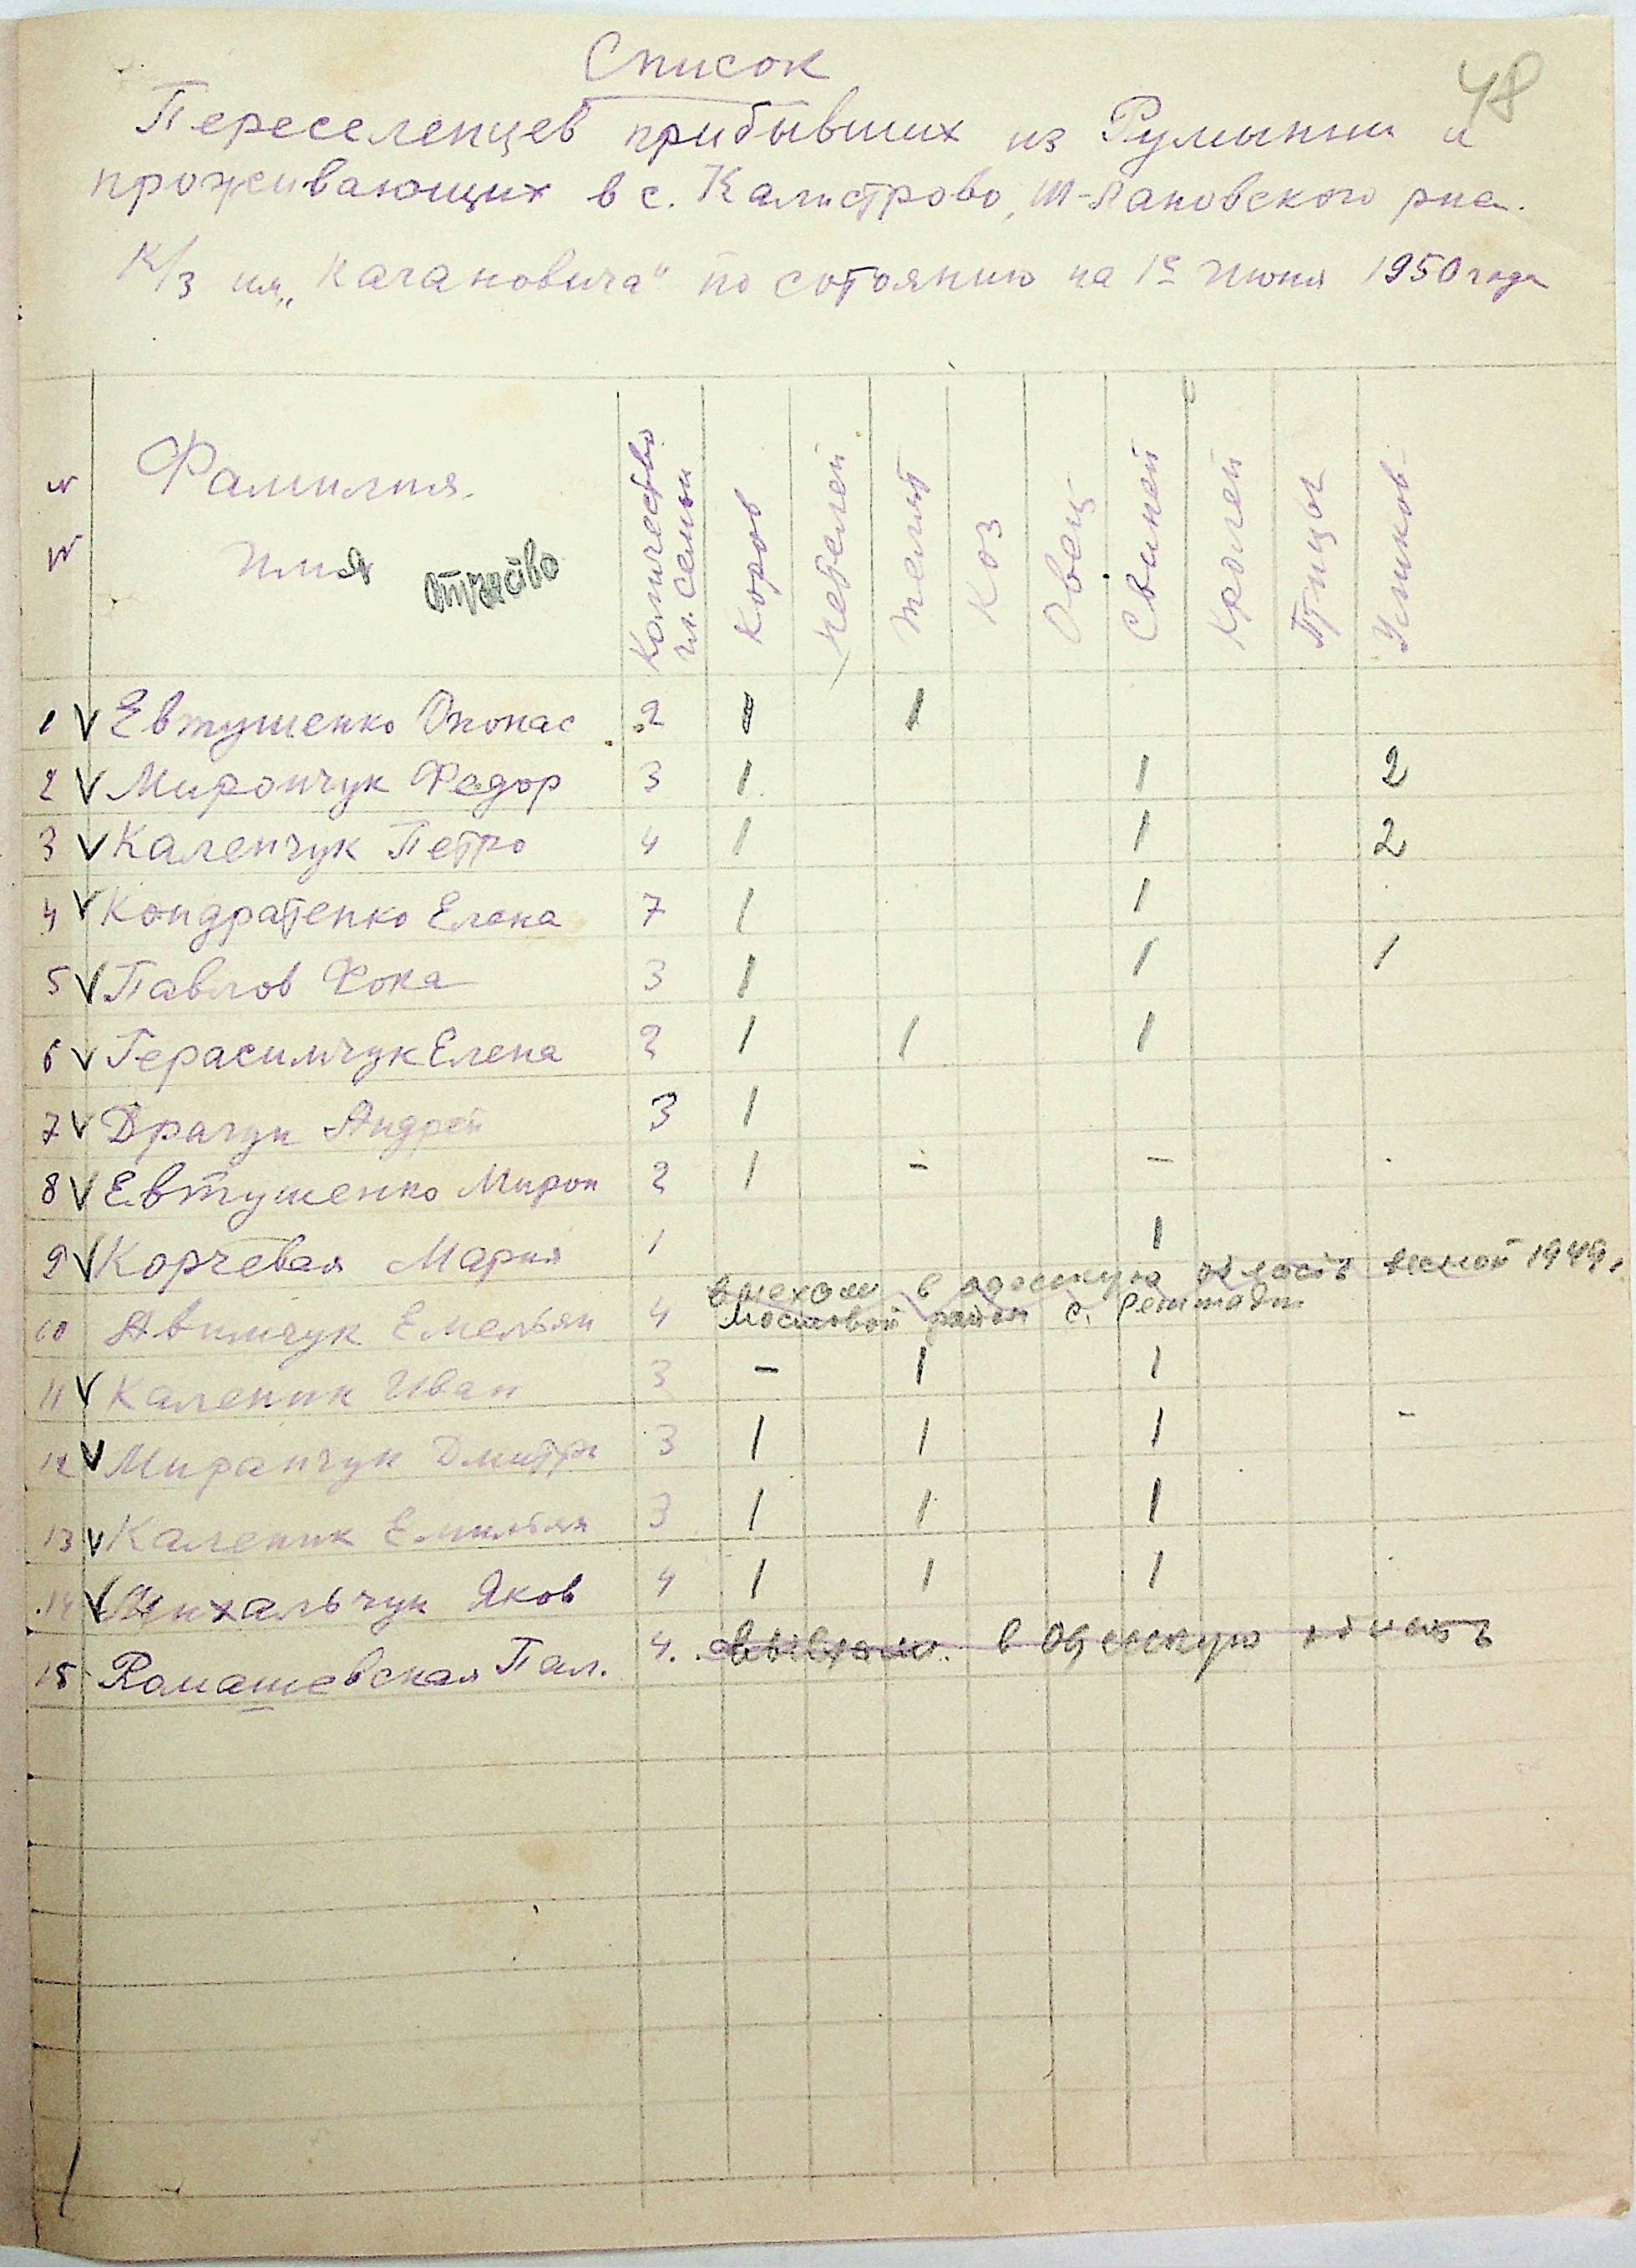 48
Список
Переселенцев прибывших из Румынии и
проживающих в с. Калистрово, Ш-Лановского р-на.
к/з им „Кагановича“ по сотоянию на 1е Июня 1950 года
№ № Фамилия имя отчество Количество чл. семьи Коров Нетелей Телят Коз Овец Свиней Кролей Птицы Уликов
1 V Евтушенко Опонас 2 1 1
2 V Мирончук Федор 3 1 1 2
3 V Каленчук Петро 4 1 1 2
4 V Кондратенко Елена 7 1 1
5 V Павлов Фока 3 1 1 1
6 V Герасимчук Елена 2 1 1 1
7 V Драгун Андрей 3 1
8 V Евтушенко Мирон 2 1 - -
9 V Корчевая Мария 1 1
10 Авимчук Емельян 4 в одесскую область весной 1949 г.
район с.
11 V Каленик Иван 3 - 1 1
12 V Миранчук Дмитри 3 1 1 1 -
13 V Каленик Емильян 3 1 1 1
14 V Михальчук Яков 4 1 1 1
15 Рамашевская Пал. 4. в Одесскую область